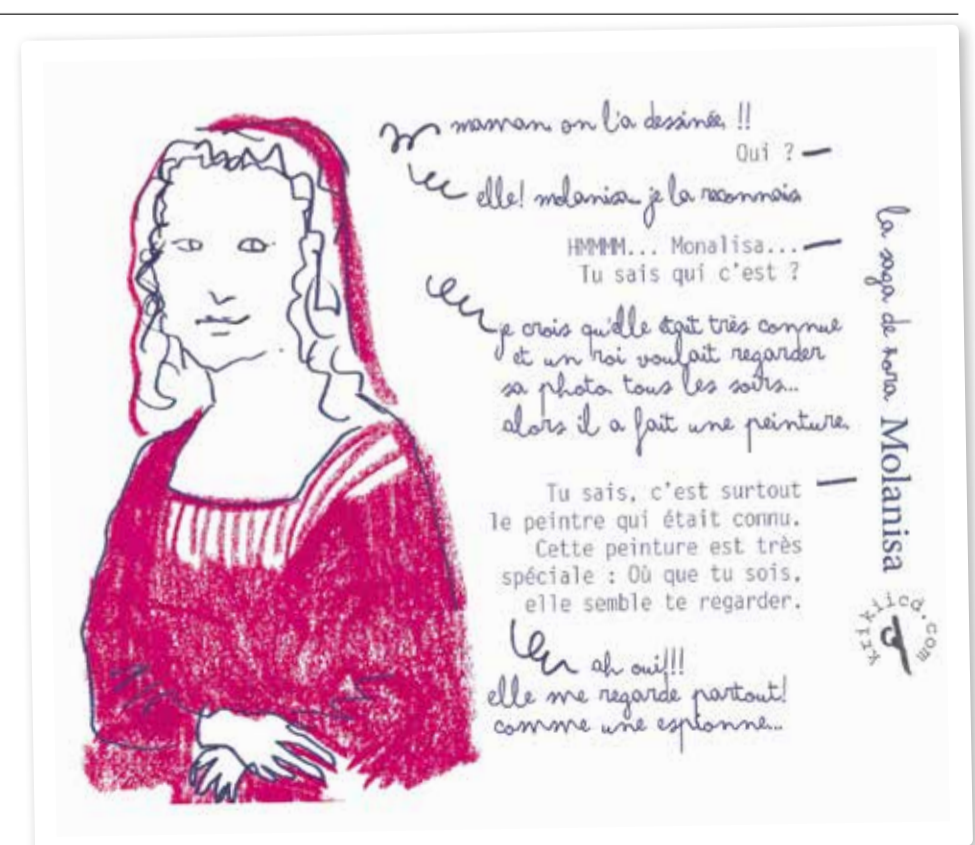 maman on l'a dessinée !!
Qui ?
elle! molanisa je la reconnais
HMMMM... Monalisa...
Tu sais qui c'est ?
je crois qu'elle était très connue
et un roi voulait regarder
sa photo tous les soirs...
alors il a fait une peinture.
Tu sais, c'est surtout
le peintre qui était connu.
Cette peinture est très
spéciale : Où que tu sois,
elle semble te regarder.
ah oui!!!
elle me regarde partout!
comme une espionne...
la saga de nora Molanisa
krikiicd.com